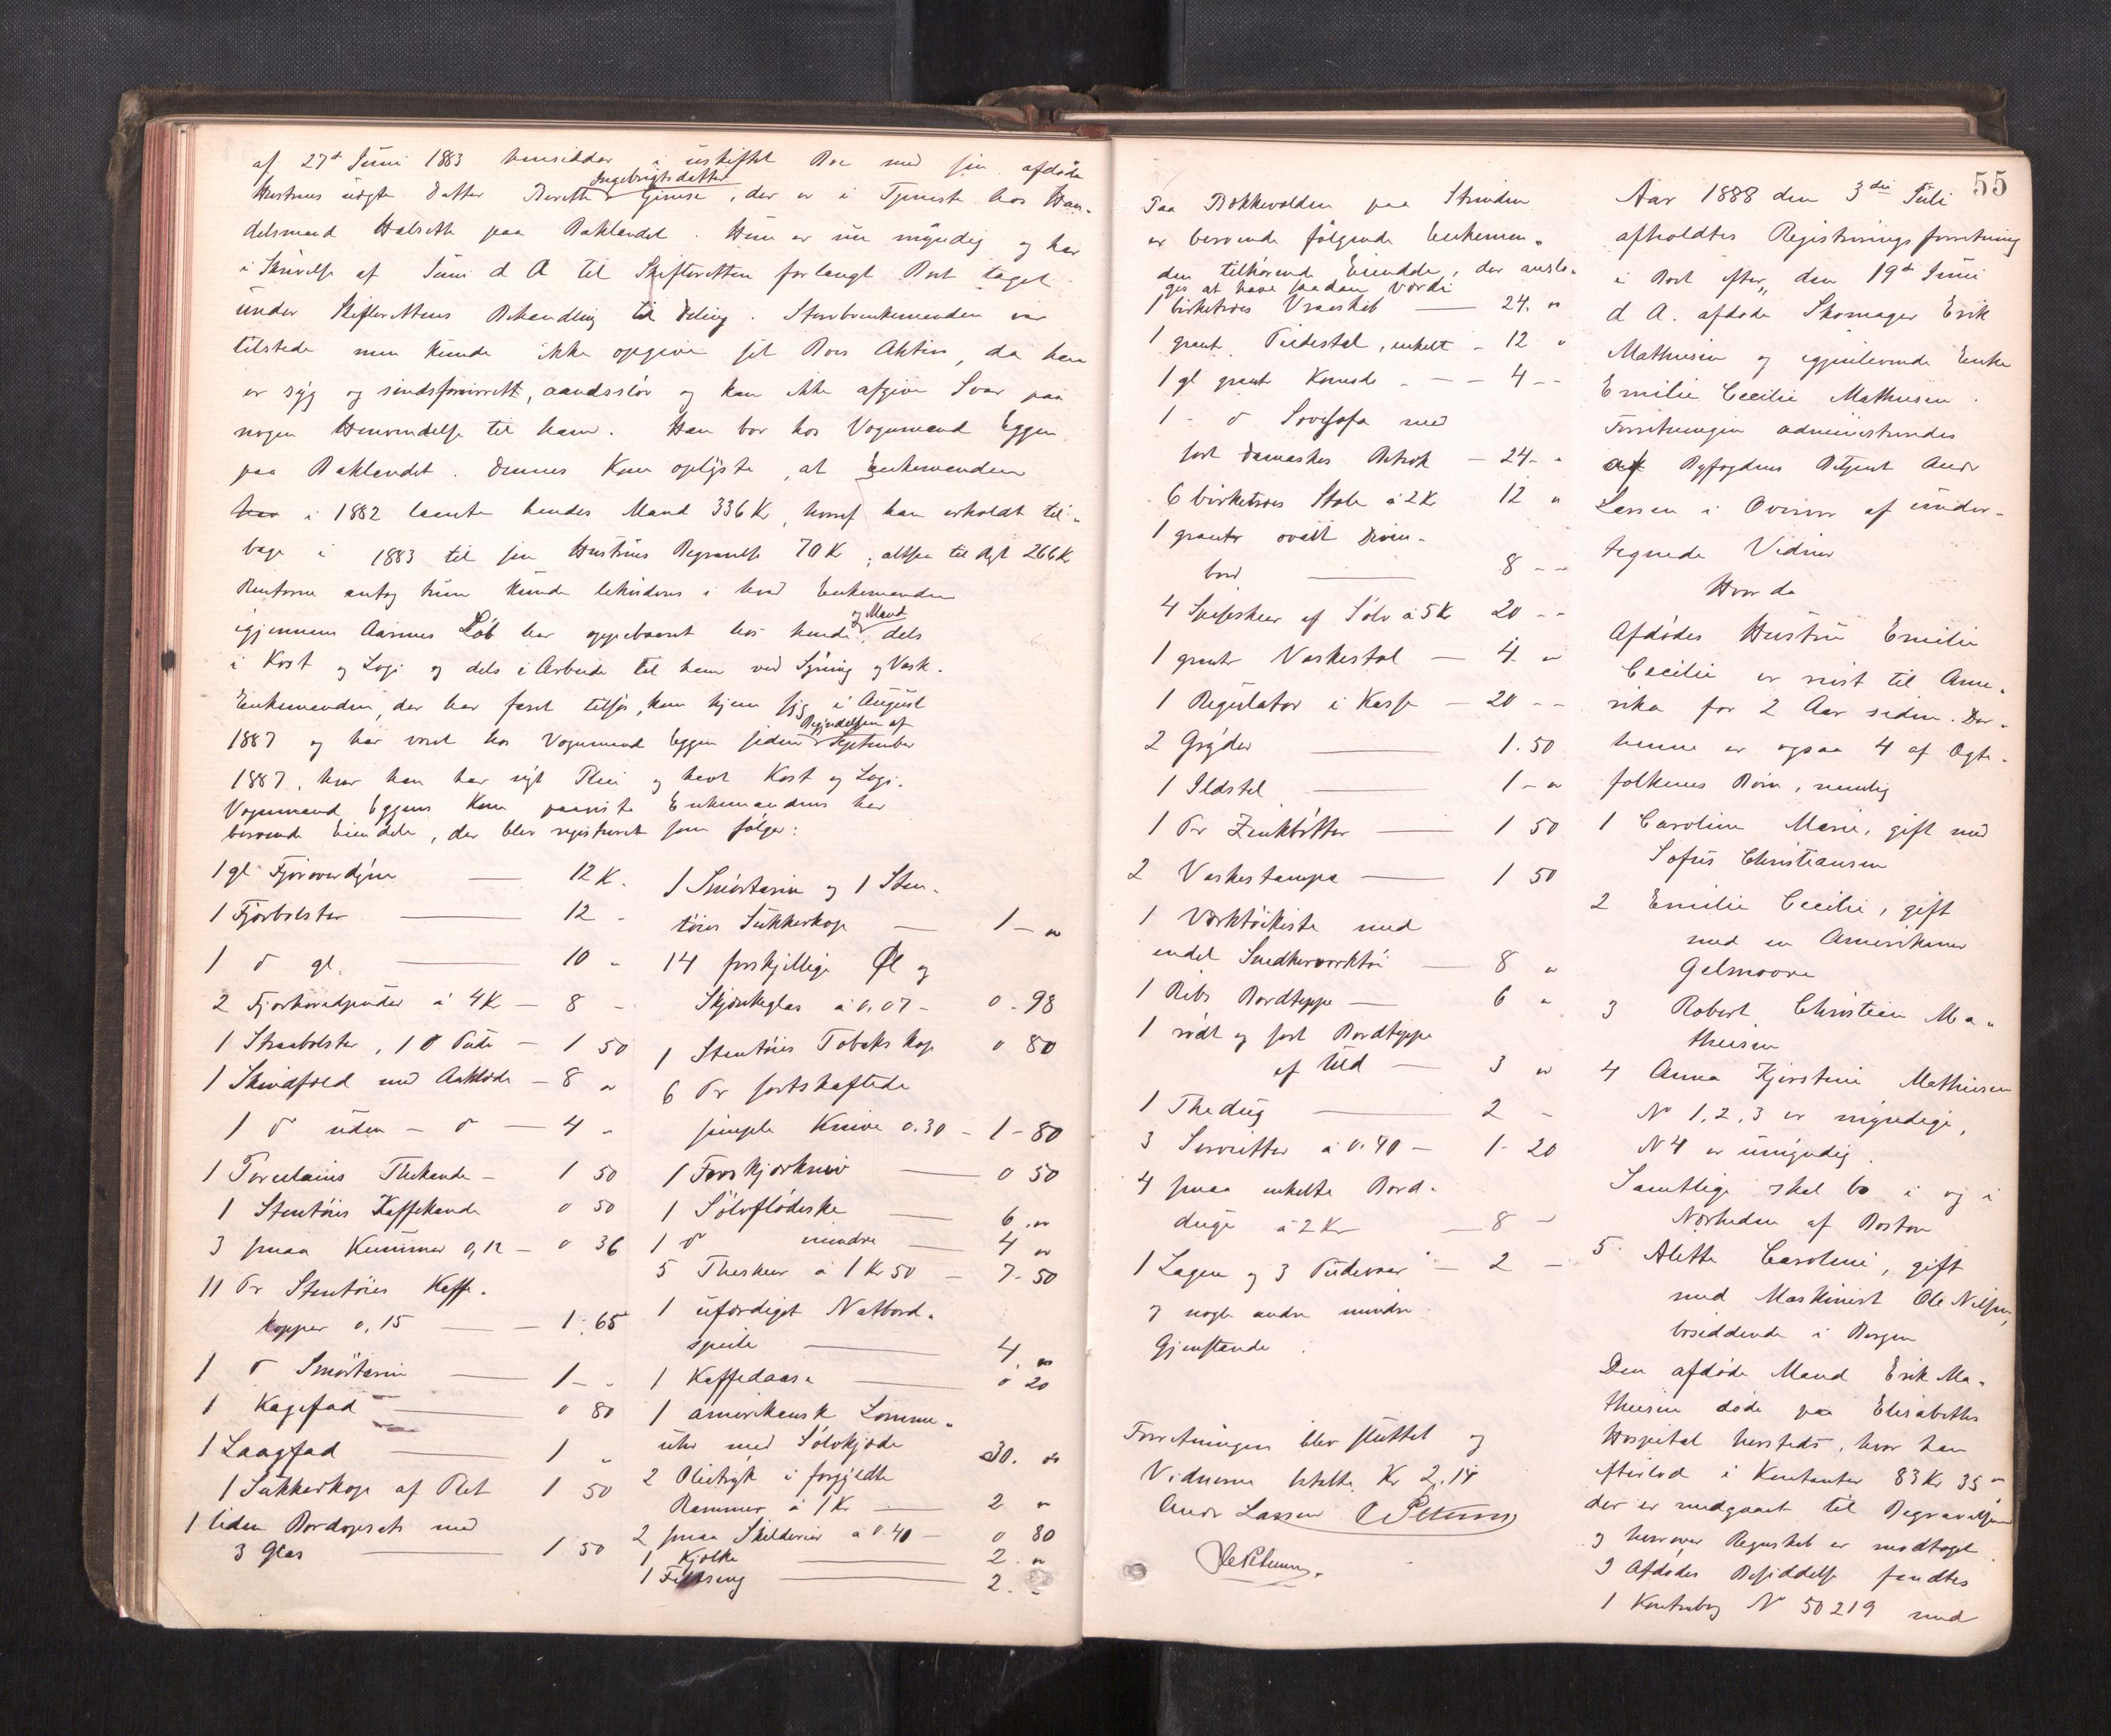 af 27de Juni 1883 hensidder i uskiftet Boe med sin afdøde
Hustrues uægte Datter Bereth Ingebrigtsdatter Gimse, der er i Tjeneste hos Han-
delsmand Halseth paa Baklandet. Hun er nu myndig og har
i Skrivelse af Juni d A til Skifteretten forlangt Boet taget
under Skifterettens Behandling til Deling. Stervboenkemanden var
tilstede men kunde ikke opgive sit Boes Aktiva, da han
er syg og sindsforvirrett, aandssløv og kan ikke afgive Svar paa
nogen Henvendelse til ham. Han bor hos Vognmand Eggen
paa Baklandet. Dennes Kone oplyste, at Enkemanden
har i 1882 laante hendes Mand 336 Kr, hvoraf han erholdt til-
bage i 1883 til sin Hustrues Begravelse 70 K, altsaa til Rest 266 Kr
Renterne antog hun kunde likvideres i hvad Enkemanden
igjennem Aarenes Løb har oppebaaret hos hende og Mand dels
i Kost og Logi og dels i Arbeide til ham ved Syning og Vask.
Enkemanden, der har faret tilsjøs, kom hjem sygg i August
1887 og har været hos Vognmand Eggen siden Begyndelsen af September
1887, hvor han har nydt Pleie og havt Kost og Logi.
Vognmand Eggens Kone paaviste Enkemandens her
beroende Eiendele, der blev registreret som følger:
1 gl Fjøroverdyne — 12 K.
1 Fjørbolster — 12 -
1 do gl. — 10 -
2 Fjørhovedpuder á 4 K — 8 -
1 Straabolster, 1 do Pude — 1 50
1 Skindfeld med Aaklæde — 8 "
1 do uden - do — 4 "
1 Porcelains Thekande — 1 50
1 Stentøies Kaffekande 0 50
3 smaa Kummer 0,12 — 0 36
11 Pr Stentøies Kaffe-
kopper 0,15 — 1.65
1 do Smørterin — 1 - "
1 Kagefad — 0 80
1 Laagfad — 1 "
1 Sukkerkop af Plet 1 50
1 liden Bordopsats med
3 Glas — 1 50
1 Smørterin og 1 Sten-
tøies Sukkerkop — 1 - "
14 forskjellige Øl og
Skjænkeglas á 0.07 - 0 - 98
1 Stentøies Tobakskop 0 80
6 Pr sortskaftede
simple Knive 0.30 - 1 - 80
1 Forskjærkniv — 0 50
1 Sølvflødeske — 6 . "
1 do mindre — 4 "
5 Theskeer á 1 Kr 50 — 7 - 50
1 ufærdiget Natbord-
speile — 4. "
1 Kaffedaase — 0 20
1 amerikansk Lomme-
uhr med Sølvkjæde 30. "
2 Olietryk i forgyldte
Rammer á 1 Kr — 2 "
2 smaa Skilderier á 0.40 — 0 80
1 Kjælke — 2. "
1 Feltseng — 2. "
Paa Bakkevolden paa Strinden
er beroende følgende Enkeman-
den tilhørende Eiendele, der ansla-
ges at have saadan Værdi
1 birketræes Vraaskab — 24. "
1 grant Piedestal, enkelt — 12 "
1 gl grant Komode — 4 --
1 - do Sovesofa med
sort Damaskes Betræk — 24 - "
6 birketræes Stole á 2 Kr 12 "
1 grantr ovalt Divan-
bord — 8 --
4 Spiseskeer af Sølv á 5 Kr 20 --
1 grantr Vaskestol — 4. "
1 Regulator i Kasse — 20 --
2 Gryder — 1.50
1 Ildstel — 1 - "
1 Pr Zinkbøtter — 1 50
2 Vaskestampe — 1 50
1 Værktøikiste med
endel Snedkerværktøi — 8 "
1 Ribs Bordteppe — 6 "
1 rødt og sort Bordteppe
af Uld — 3 "
1 Thedug — 2 -
3 Servietter á 0.40 — 1 - 20
4 smaa enkelte Bord-
duge á 2 Kr — 8 -
1 Lagen og 3 Pudevaar — 2 —
og nogle andre mindre
Gjenstande.
Forretningen blev sluttet og
Vidnerne betalte Kr 2,14
Andr Larsen
55
Aar 1888 den 3die Juli
afholdtes Registreringsforretning
i Boet efter, den 19de Juni
d A. afdøde Skomager Erik
Mathiesen og gjenlevende Enke
Emilie Cecilie Mathiesen.
Forretningen administreredes
af Byfogdens Betjent Andr
Larsen i Overvær af under-
tegnede Vidner
Hvorda
Afdødes Hustru Emilie
Cecilie er reist til Ame-
rika for 2 Aar siden. Der-
henne er ogsaa 4 af Ægte-
folkenes Børn, nemlig
1 Caroline Marie, gift med
Sofus Christiansen
2 Emilie Cecilie, gift
med en Amerikaner
Gelmoore
3 Robert Christian Ma-
thiesen
4 Anna Kjerstine Mathiesen
No 1, 2, 3 er myndige,
N 4 er umyndig.
Samtlige skal bo i og i
Nærheden af Boston
5. Alette Caroline, gift
med Maskinist Ole Nilsen,
bosiddende i Bergen
Den afdøde Mand Erik Ma-
thiesen døde paa Elisabeths
Hospital hersteds, hvor han
efterlod i Kontanter 83 Kr 35 "
der er medgaaet til Begravelsen
og hvorover Regnskab er modtaget.
I Afdødes Besiddelse fandtes
1 Kontrabog No 50219 med